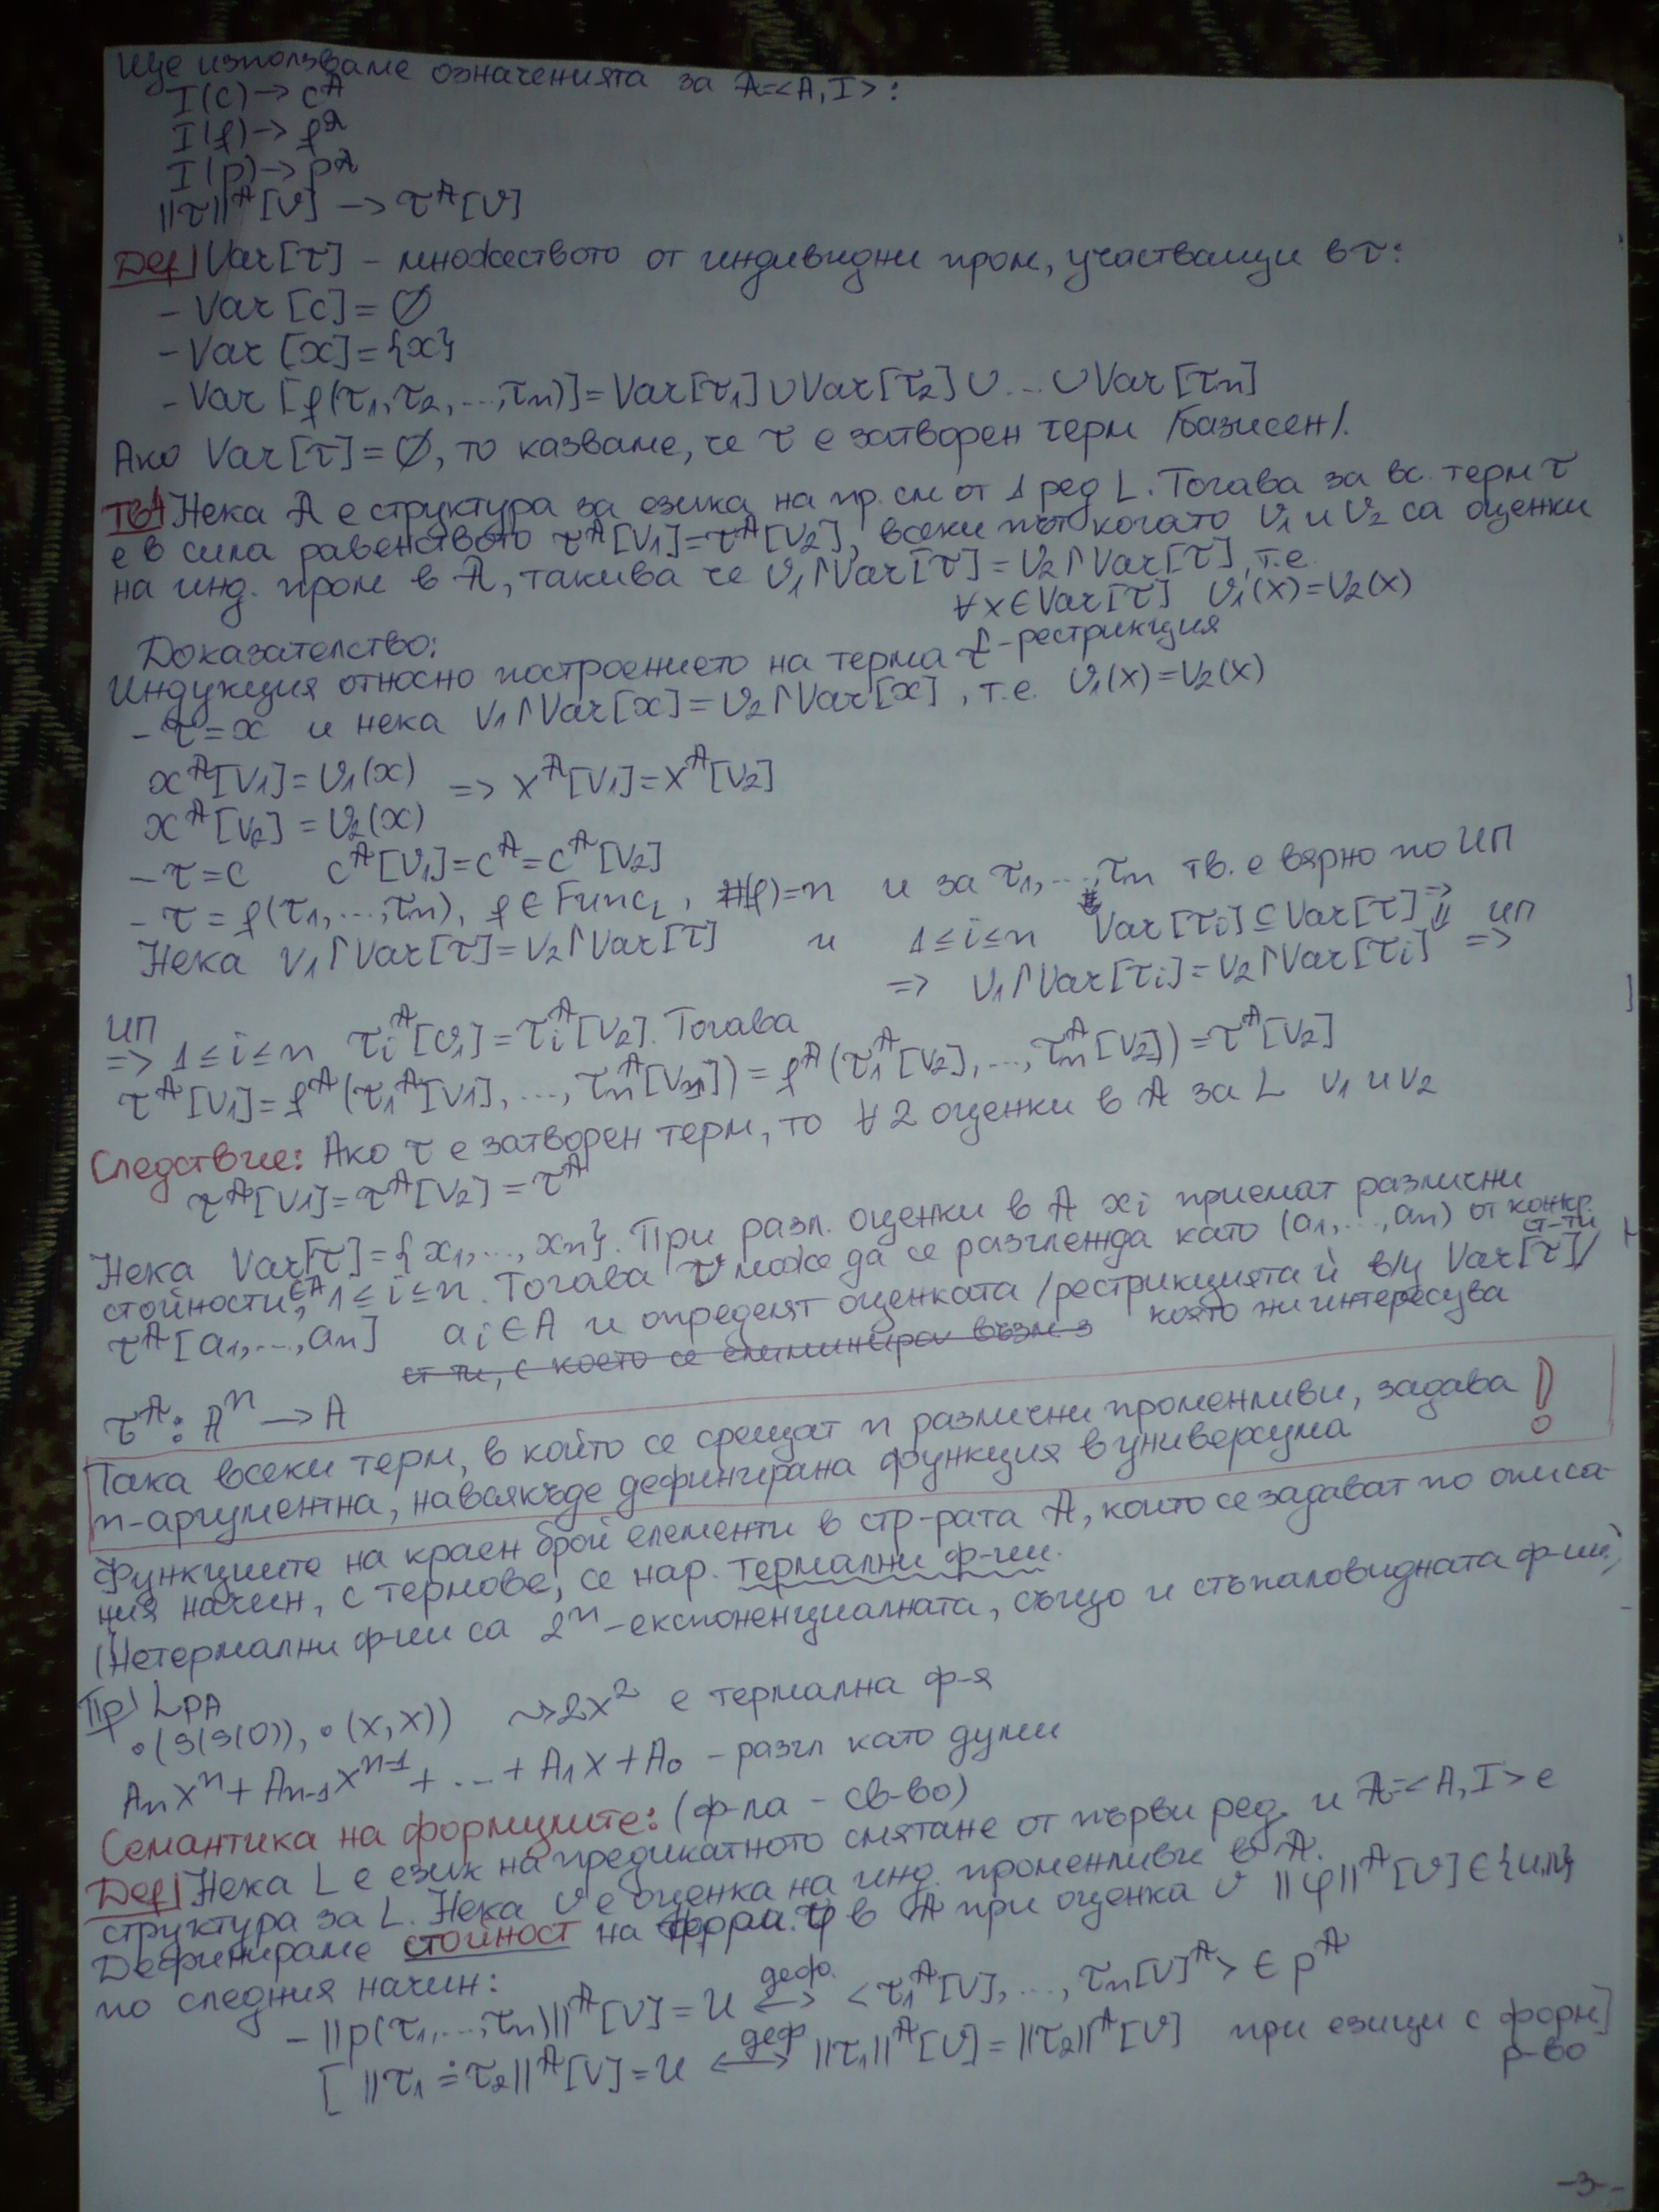 Ще използваме означенията за 𝔸=<A, I>:
I(c) → c^𝔸
I(f) → f^𝔸
I(p) → p^𝔸
||τ||^𝔸[v] → τ^𝔸[v]
Def| Var[τ] – множеството от индивидни пром, участващи в τ:
– Var[c] = ∅
– Var[x] = {x}
– Var[f(τ1, τ2, ..., τn)] = Var[τ1] ∪ Var[τ2] ∪ ... ∪ Var[τn]
Ако Var[τ] = ∅, то казваме, че τ е затворен терм /базисен/.
Тв| Нека 𝔸 е структура за езика на пр. см от 1 ред L. Тогава за вс. терм τ
е в сила равенството τ^𝔸[v1] = τ^𝔸[v2], всеки път когато v1 и v2 са оценки
на инд. пром в 𝔸, такива че v1↾Var[τ] = v2↾Var[τ], т.е.
∀x∈Var[τ] v1(x) = v2(x)
Доказателство: ↾-рестрикция
Индукция относно построението на терма τ
– τ = x и нека v1↾Var[x] = v2↾Var[x], т.е. v1(x) = v2(x)
x^𝔸[v1] = v1(x) => x^𝔸[v1] = x^𝔸[v2]
x^𝔸[v2] = v2(x)
– τ = c c^𝔸[v1] = c^𝔸 = c^𝔸[v2]
– τ = f(τ1, ..., τn), f ∈ Func_L, #(f) = n и за τ1, ..., τn тв. е вярно по ИП
Нека v1↾Var[τ] = v2↾Var[τ] и 1 ≤ i ≤ n Var[τi] ⊆ Var[τ] =>
=> v1↾Var[τi] = v2↾Var[τi] => ИП
ИП => 1 ≤ i ≤ n τi^𝔸[v1] = τi^𝔸[v2]. Тогава
τ^𝔸[v1] = f^𝔸(τ1^𝔸[v1], ..., τn^𝔸[v1]) = f^𝔸(τ1^𝔸[v2], ..., τn^𝔸[v2]) = τ^𝔸[v2]
Следствие: Ако τ е затворен терм, то ∀ 2 оценки в 𝔸 за L v1 и v2
τ^𝔸[v1] = τ^𝔸[v2] = τ^𝔸
Нека Var[τ] = {x1, ..., xn}. При разл. оценки в 𝔸 xi приемат различни
стойности ∈A, 1 ≤ i ≤ n. Тогава v може да се разглежда като (a1, ..., an) от конкр. ст-ти
τ^𝔸[a1, ..., an] ai ∈ A и определят оценката /рестрикцията ѝ в/у Var[τ]/
ст-ти, с което се елиминира която ни интересува
τ^𝔸: A^n → A
Така всеки терм, в който се срещат n различни променливи, задава !
n-аргументна, навсякъде дефинирана функция в универсума
Функциите на краен брой елементи в стр-рата 𝔸, които се задават по описа-
ния начин, с термове, се нар. термални ф-ии.
(Нетермални ф-ии са 2^n-експоненциалната, също и стъпаловидната ф-ии)
Пр| L_PA
•(S(S(0)), •(x, x)) ⇝ 2x^2 е термална ф-я
Anx^n + An-1x^n-1 + ... + A1x + A0 – разгл като думи
Семантика на формулите: (ф-ла – св-во)
Def| Нека L е език на предикатното смятане от първи ред. и 𝔸=<A, I> е
структура за L. Нека v е оценка на инд. променливи в 𝔸.
Дефинираме стойност на форм. φ в 𝔸 при оценка v ||φ||^𝔸[v] ∈ {и,л}
по следния начин:
– ||p(τ1, ..., τn)||^𝔸[v] = и деф. ⟷ <τ1^𝔸[v], ..., τn[v]^𝔸> ∈ p^𝔸
[ ||τ1 ≐ τ2||^𝔸[v] = и деф ⟷ ||τ1||^𝔸[v] = ||τ2||^𝔸[v] при езици с форм] р-во
–3–